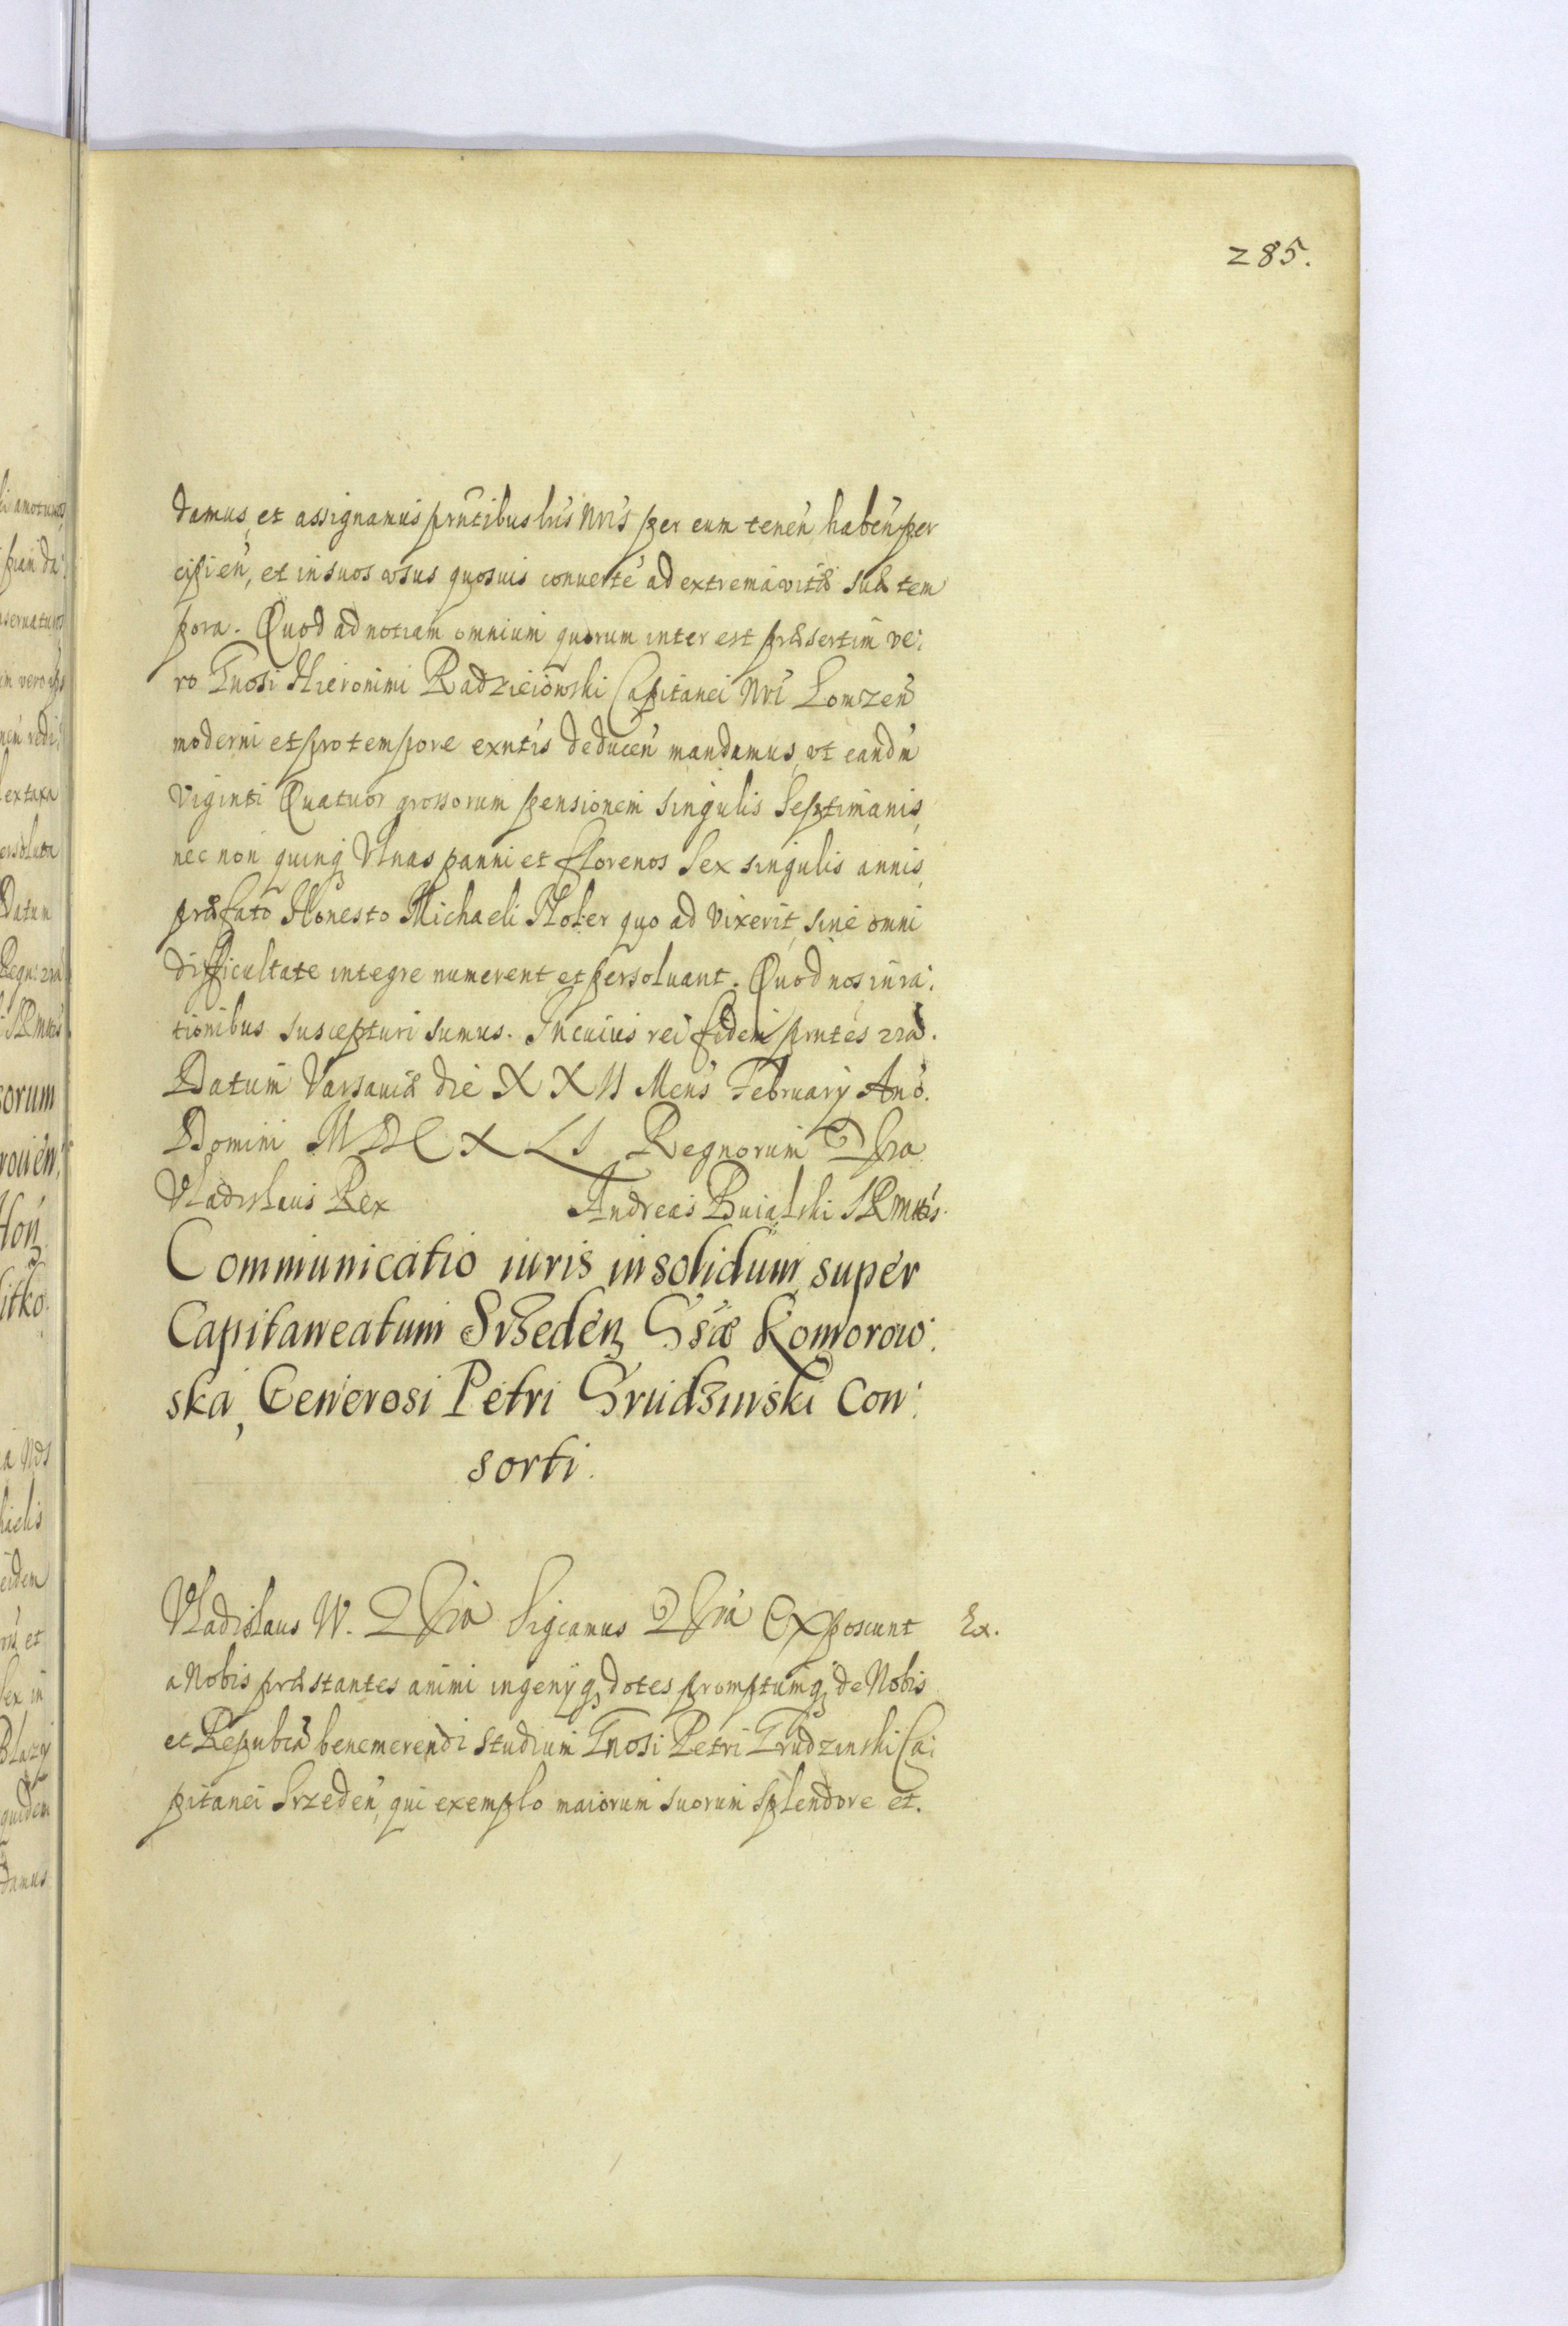 285.
damus, et assignamus prntibus lris Nris per eum tenen haben per
cipien, et in suos vsus quosuis conuerte ad extrema vitæ suæ tem
pora. Quod ad notiam omnium quorum inter est præsertim ve:
ro Gnosi Hieronimi Radzieiowski Capitanei Nri Lomzen
moderni et pro tempore exntis deducen mandamus, vt eandm
Viginti Quatuor grossorum pensionem singulis Septimanis,
nec non quinq Vlnas panni et florenos Sex singulis annis,
præfato Honesto Michaeli Hoker quo ad vixerit, sine omni
difficultate integre numerent et persoluant. Quod nos in ra:
tionibus suscepturi sumus. In cuius rei fidem prntes rra.
Datum Varsauiæ die XXVI Mens February Ano.
Domini MDCXLI Regnorum
Vladislaus Rex Andreas Buialski SRMttis.
Communicatio iuris in solidum super
Capitaneatum Srzeden, Gsæ Komorow:
ska, Generosi Petri Grudzinski Con:
sorti.
Vladislaus IV. Sigcamus Exposcunt Ex.
a Nobis præstantes animi ingenyq dotes promptumq de Nobis
et Repubca benemerendi studium Gnosi Petri Grudzinski Ca:
pitanei Srzeden, qui exemplo maiorum suorum splendore et.